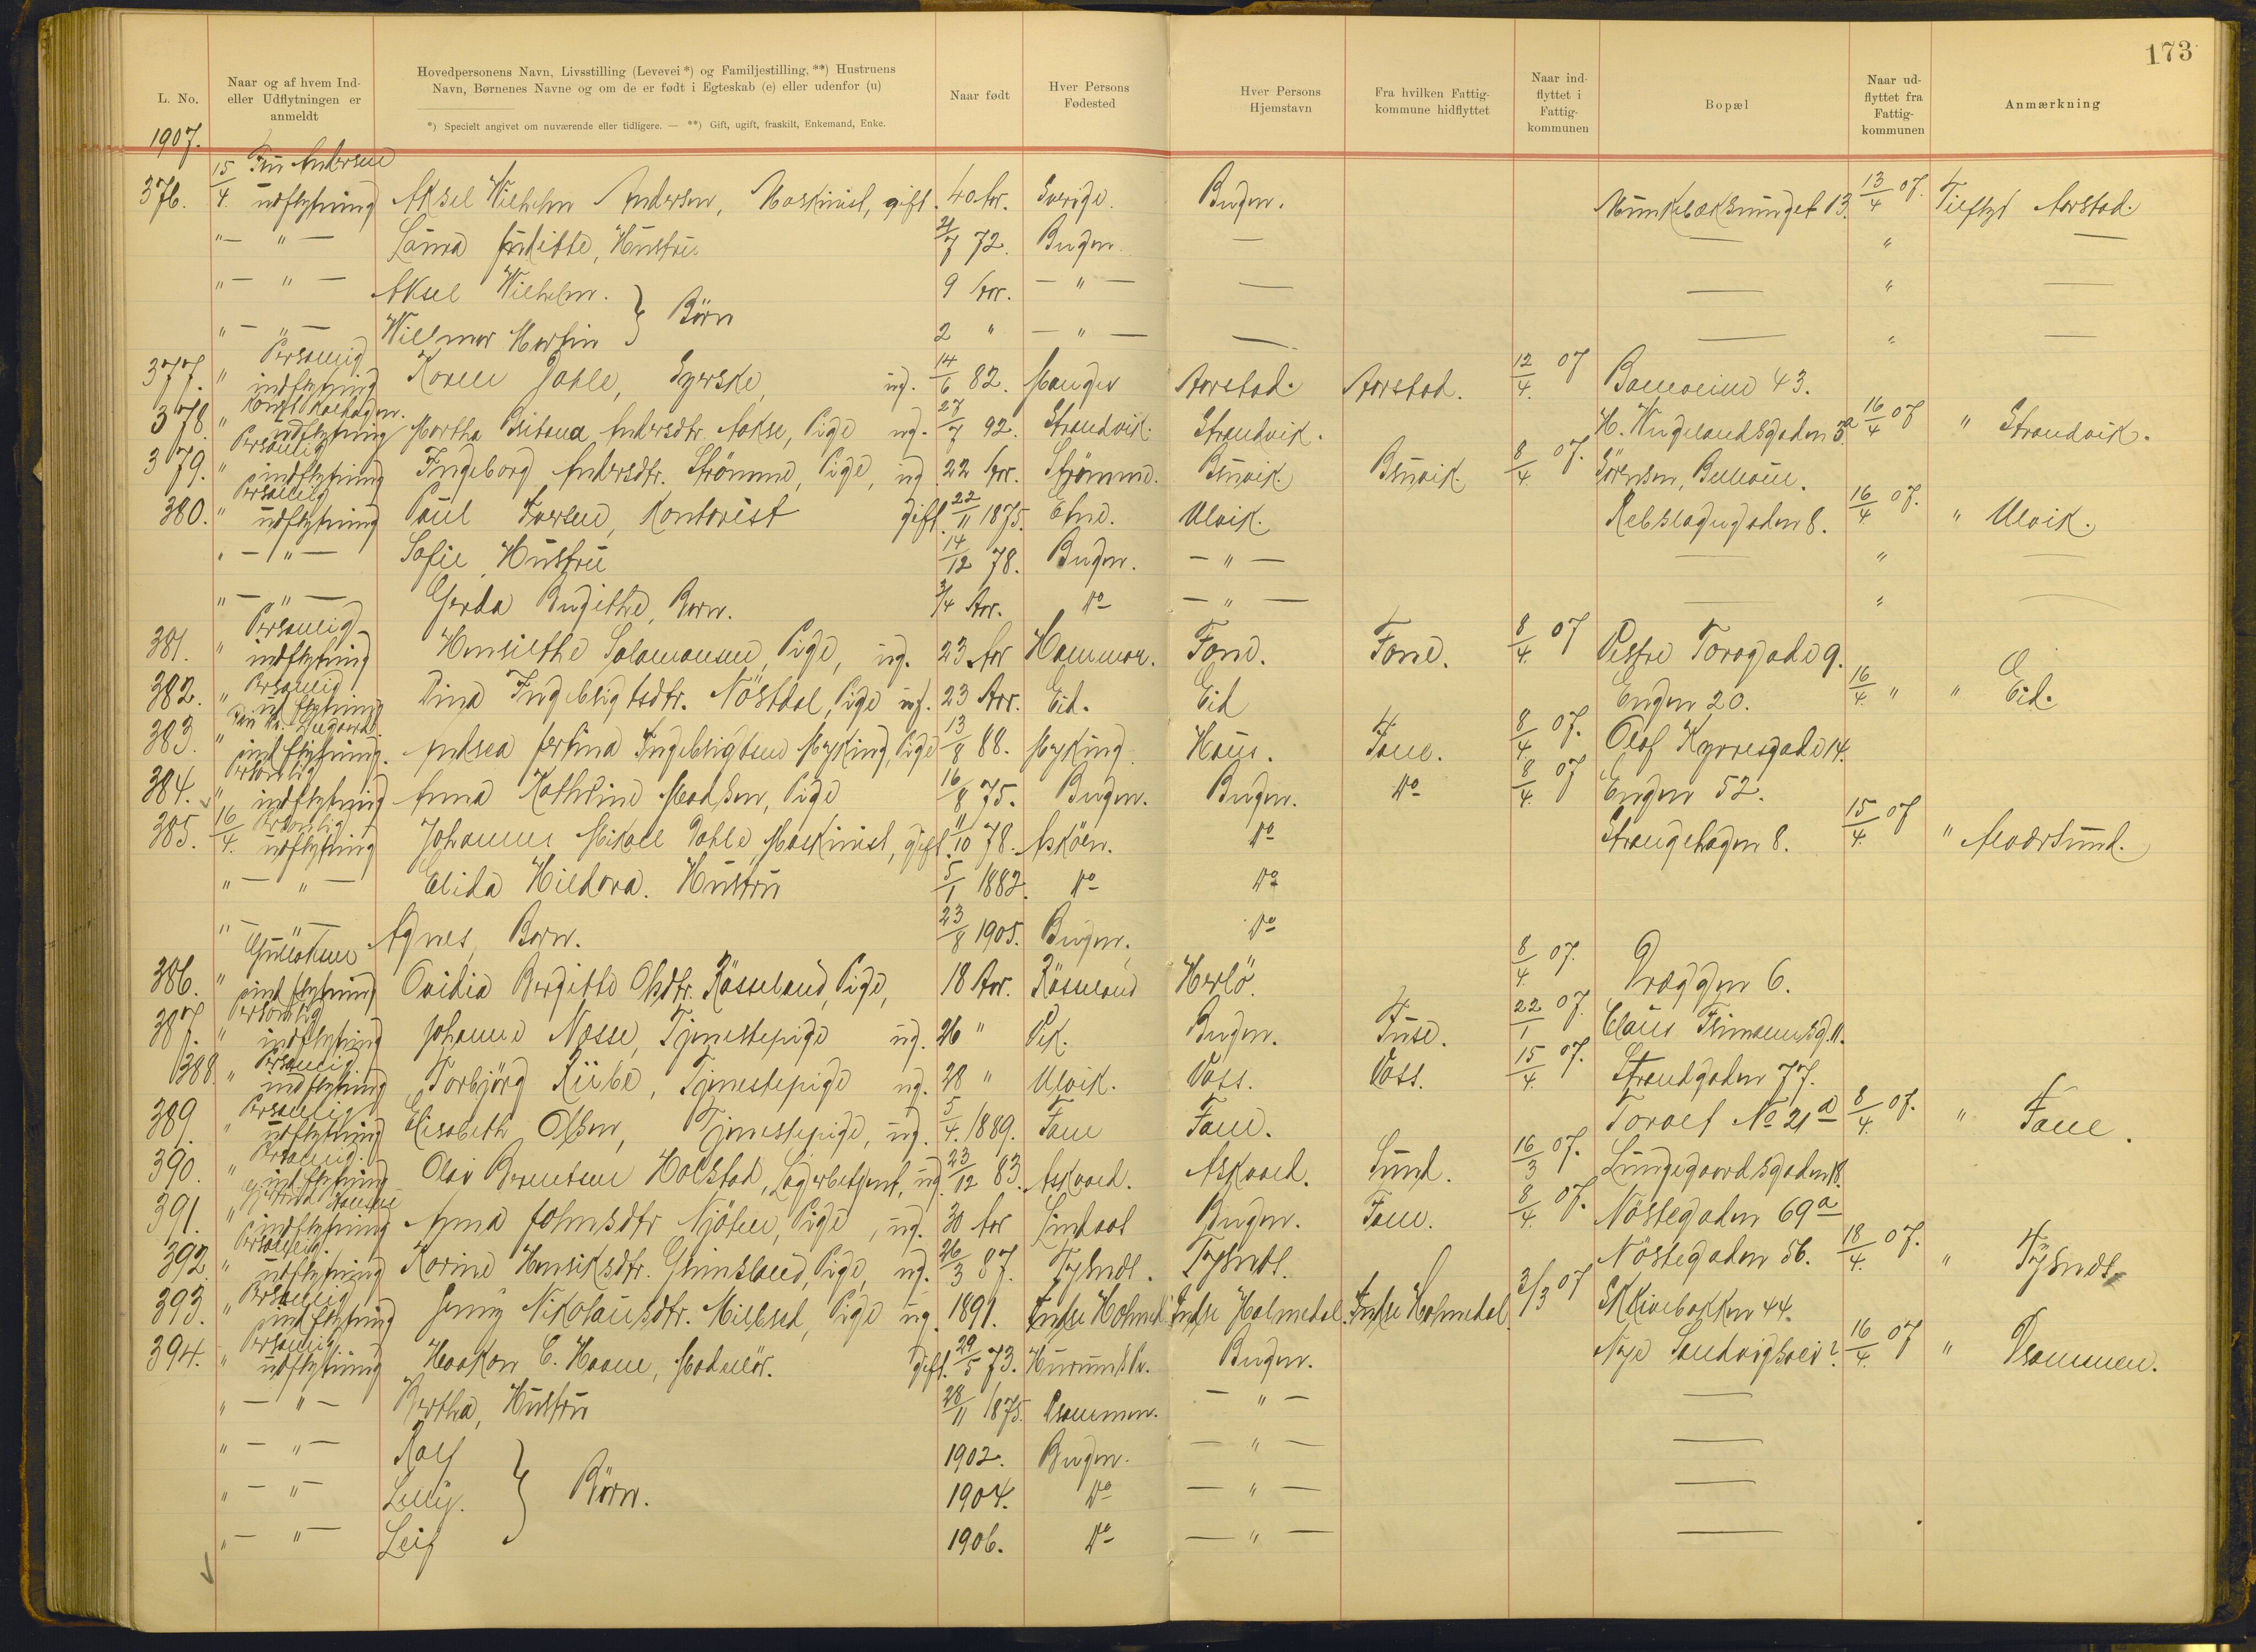 173
L. No.
Naar og af hvem Ind- eller Udflytningen er anmeldt
Hovedpersonens Navn, Livsstilling (Levevei *) og Familjestilling, **) Hustruens Navn, Børnenes Navne og om de er født i Egteskab (e) eller udenfor (u)
*) Specielt angivet om nuværende eller tidligere. — **) Gift, ugift, fraskilt, Enkemand, Enke.
Naar født
Hver Persons Fødested
Hver Persons Hjemstavn
Fra hvilken Fattig- kommune hidflyttet
Naar ind- flyttet i Fattig- kommunen
Bopæl
Naar ud- flyttet fra Fattig- kommunen
Anmærkning
1907.
376. 15/4. Fru Andersen udflytning Aksel Wilhelm Andersen, Maskinist, gift. 40 Aar. Sverige. Bergen. 13. 13/4 07. Tilflyt Aarstad.
" — " — Hustru 21/7 72. Bergen. — — " —
" — " — Aksel Wilhelm. } Börn 9 Aar. — " — — — " —
" — " — Willmar Martin 2 " — " — — — " —
377. " Personlig indflytning Karen Dahle, Syerske, ug. 14/6 82. Manger Aarstad. Aarstad. 12/4. 07 43.
378. " udflytning Martha Andersdtr. Pige ug. 27/7 92. Strandvik. Strandvik. H. Wergelandsgaden 16/4 07 " Strandvik.
379. " Personlig indflytning Ingeborg Andersdtr. Strömme, Pige, ug 22 Aar. Strömme. 8/4. 07. Sörensen,
380. " Personlig udflytning Paul Iversen, Kontorist gift. 22/11 1875. Etne. Ulvik. Rebslagergaden 8. 16/4 07. " Ulvik.
" — " — Sofie, Hustru 14/12 78. Bergen. — " — — " —
" — " — Gerda Birgithe, Barn. 3/4 Aar. Do — " — — " —
381. " Personlig indflytning Salamonsen, Pige, ug. 23 Aar Hammer. Fane. Fane. 8/4. 07 Vestre Torvgade 9.
382. " Personlig udflytning Dina Ingebrigtsdtr. Nöstdal, Pige ug. 23 Aar. Eid. Eid Engen 20. 16/4. " " Eid.
383. " indflytning. Andrea Ingebrigtsen Myking, Pige 13/8 88. Myking. Haus. Fane. 8/4. 07. Olaf Kyrresgade 14.
384. " Personlig indflytning Anna Kathrine Madsen, Pige 16/8 75. Bergen. Bergen. Do 8/4. 07 Engen 52.
385. 16/4. Personlig udflytning Johannes Mikael Dahle Maskinist, gift. 11/10 78. Asköen. Do Strangehagen 8. 15/4. 07 " Alversund.
" — " — Elida Hildora. Hustru 5/1 1882. Do Do
" — " — Agnes, Barn. 23/8 1905. Bergen. Do
386. " indflytning Ovidia Bergitte Olsdtr. Rösseland, Pige, 18 Aar. Rösseland Herlö. 8/4. 07. Dræggen 6.
387. " Personlig indflytning Johanne Nesse, Tjenestepige ug. 26 " Vik. Bergen. Fuse. 22/1 07. Claus 11.
388. " Personlig indflytning Torbjörg Tjenestepige ug. 28 " Ulvik. Voss. Voss. 15/4. 07. Strandgaden 77.
389. " Personlig udflytning Elisabeth Olsen, Tjenestepige, ug. 5/4. 1889. Fane Fane. Torvet No 21 a 8/4. 07. " Fane.
390. " Personlig. indflytning Olav Berentsen Holstad, Lagerbetjent, ug. 23/12 83. Askvoll. Askvoll. Sund. 16/3 07. Lungegaardsgaden 18.
391. " Gjertrud Hansen indflytning Anna Johnsdtr Pige, ug. 30 Aar Lindaas Bergen. Fane. 8/4. 07. Nöstegaden 69 a
392. " Personlig. udflytning Karine Henriksdtr. Grimsland, Pige, ug. 26/3 87. Tysnes. Tysnes. Nöstegaden 56. 18/4. 07. " Tysnes
393. " Personlig indflytning Jenny Nikolaisdtr. Pige ug. 1891. Indre Holmedal Indre Holmedal. Indre Holmedal 2/3 07 Skivebakken 44.
394. " Personlig. udflytning Haakon C. Hoane, gift. 29/5 73. Bergen. Nye Sandvigsvei ? 16/4. 07 " Drammen.
" — " — Bertha, Hustru 28/11 1875. Drammen. — " — —
" — " — Rolf } Börn. 1902. Bergen. — " — —
" — " — Lilly. 1904. Do — " — —
" — " — Leif 1906. Do — " — —